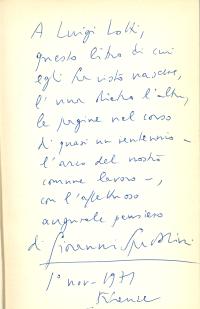 A Luigi Lotti,
questo libro di cui
egli ha visto nascere,
l'una dietro l'altra,
le pagine nel corso
di quasi un ventennio –
l'arco del nostro
comune lavoro –,
con l'affettuoso
augurale pensiero
di Giovanni Spadolini
1° nov. 1971
Firenze